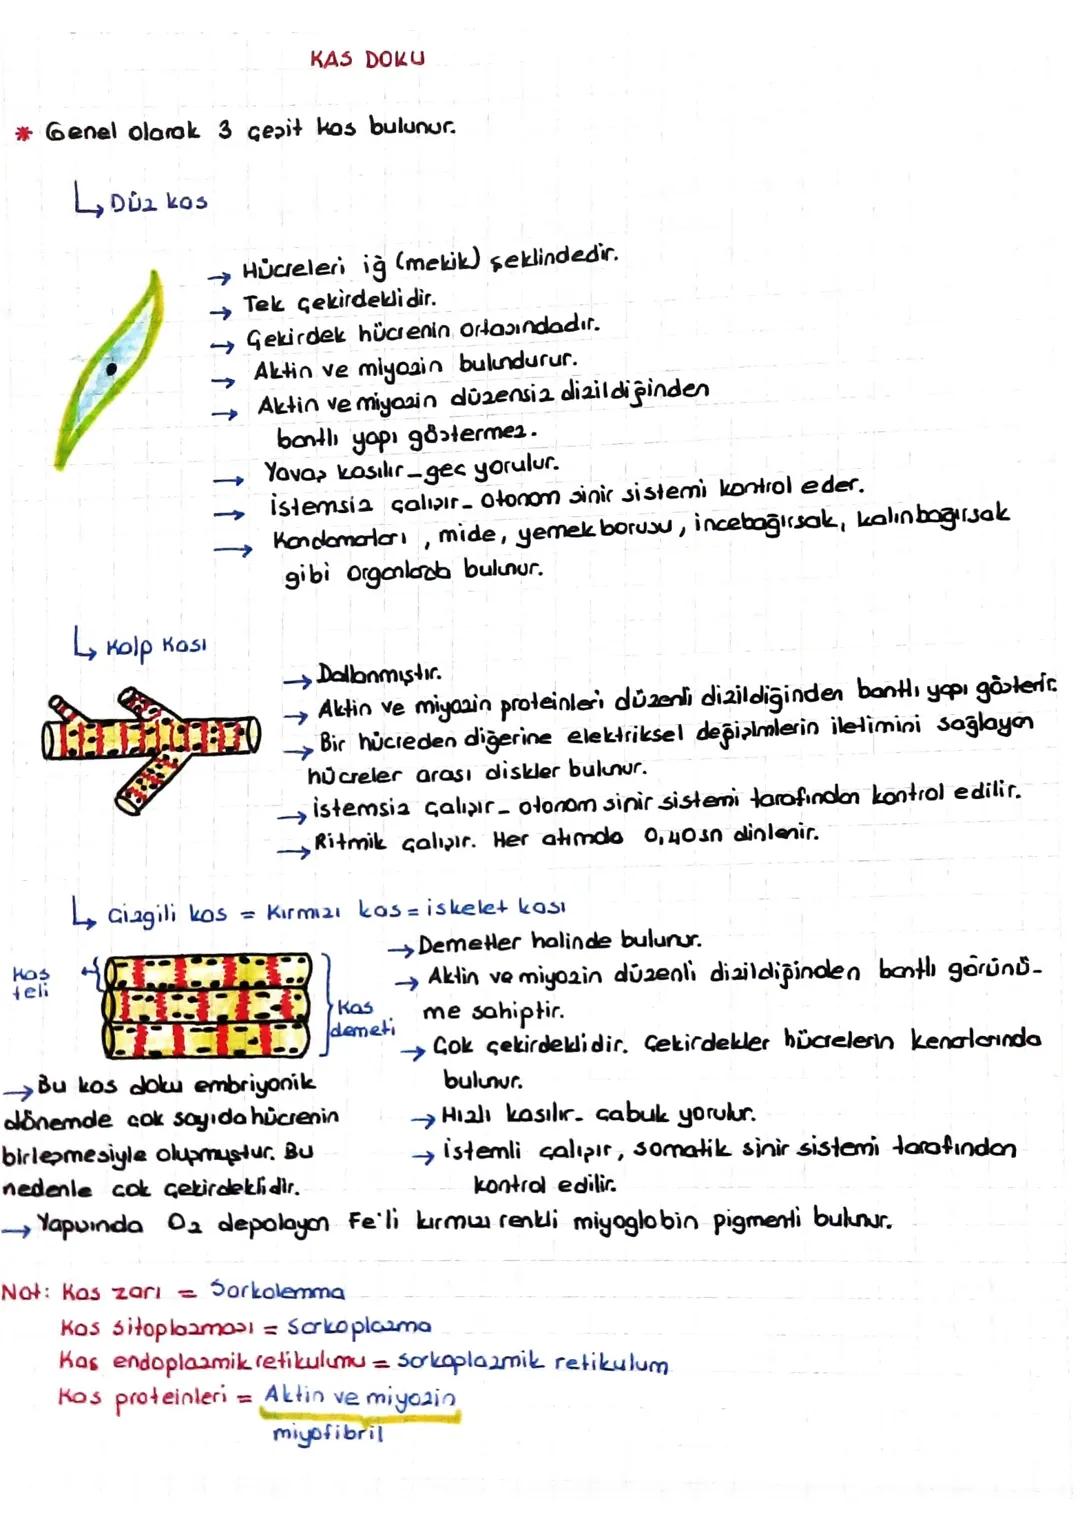 KAS DOKU
* Genel olarak 3 çeşit kas bulunur.
Düz kas
→ Hücreleri iğ (mekik) şeklindedir.
→ Tek çekirdeklidir.
→ Çekirdek hücrenin ortasındadır.
→ Aktin ve miyozin bulundurur.
→ Aktin ve miyozin düzensiz dizildiğinden
bantlı yapı göstermez.
→ Yavaş kasılır - geç yorulur.
→ İstemsiz çalışır - otonom sinir sistemi kontrol eder.
→ Kandamarları, mide, yemek borusu, incebağırsak, kalınbağırsak
gibi organlarda bulunur.
Kalp Kası
→ Dallanmıştır.
→ Aktin ve miyozin proteinleri düzenli dizildiğinden bantlı yapı gösterir.
→ Bir hücreden diğerine elektriksel değişimlerin iletimini sağlayan
hücreler arası diskler bulunur.
→ istemsiz çalışır - otonom sinir sistemi tarafından kontrol edilir.
→ Ritmik çalışır. Her atımda 0,40 sn dinlenir.
Çizgili kas = Kırmızı kas = iskelet kası
Kas
teli
Kas
demeti
→ Demetler halinde bulunur.
→ Aktin ve miyozin düzenli dizildiğinden bantlı görünü-
me sahiptir.
→ Çok çekirdeklidir. Çekirdekler hücrelerin kenarlarında
bulunur.
→ Hızlı kasılır - çabuk yorulur.
→ İstemli çalışır, somatik sinir sistemi tarafından
kontrol edilir.
→ Bu kas doku embriyonik
dönemde çok sayıda hücrenin
birleşmesiyle oluşmuştur. Bu
nedenle çok çekirdeklidir.
→ Yapısında O2 depolayan Fe'li kırmızı renkli miyoglobin pigmenti bulunur.
Not: Kas zarı = Sarkolemma
Kas sitoplazması = Sarkoplazma
Kas endoplazmik retikulumu = sarkoplazmik retikulum
Kas proteinleri = Aktin ve miyozin
miyofibril